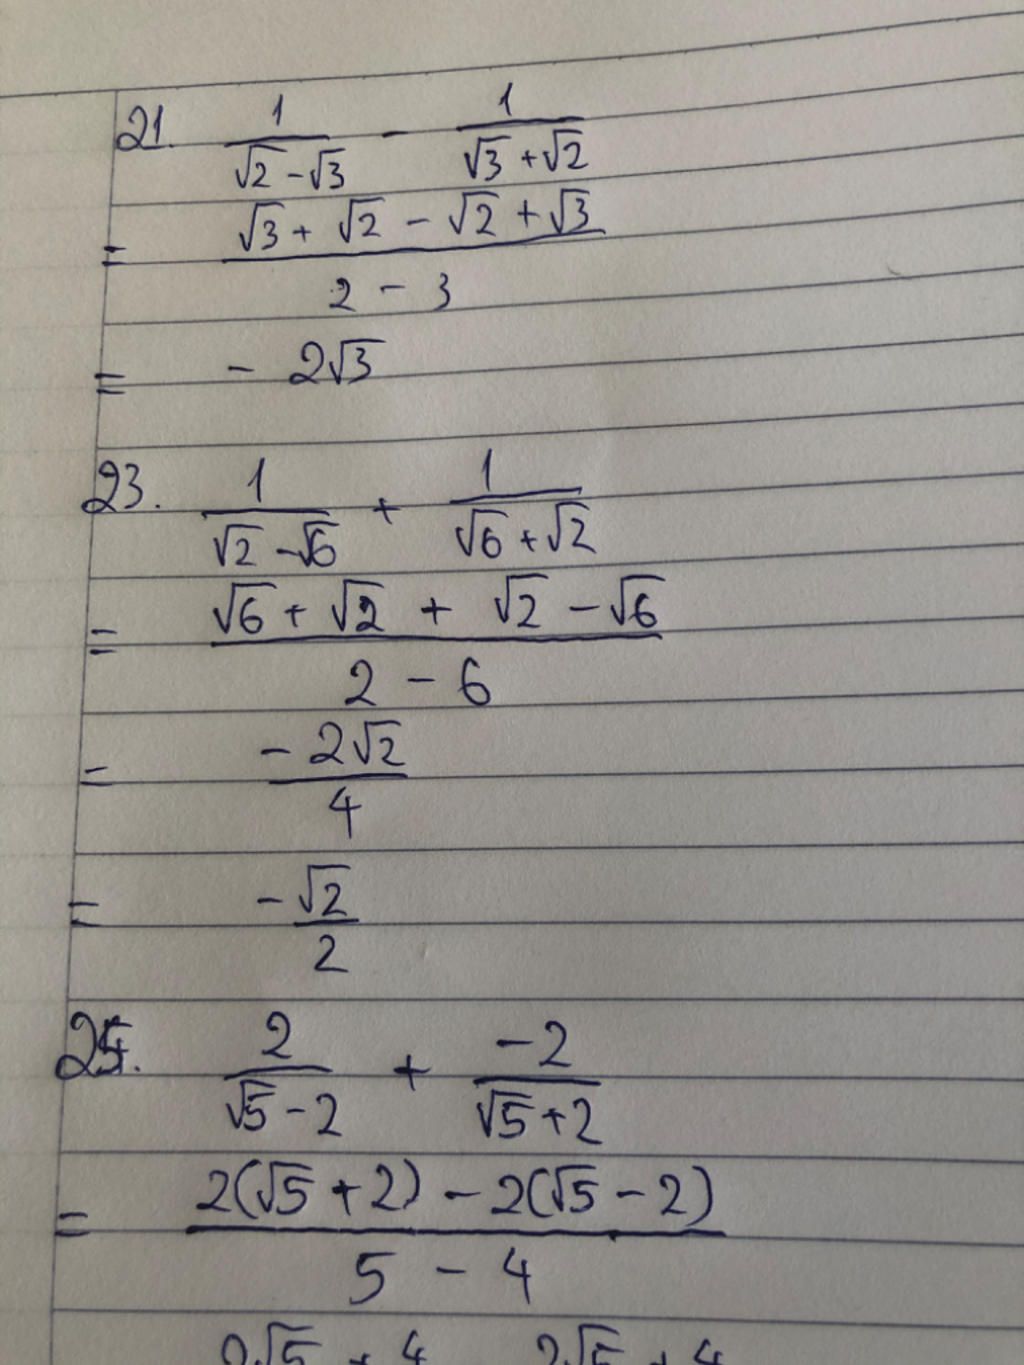 21. 1/(√2 - √3) - 1/(√3 + √2)
= (√3 + √2 - √2 + √3)/(2 - 3)
= - 2√3
23. 1/(√2 - √6) + 1/(√6 + √2)
= (√6 + √2 + √2 - √6)/(2 - 6)
= (- 2√2)/4
= -√2/2
25. 2/(√5 - 2) + -2/(√5 + 2)
= (2(√5 + 2) - 2(√5 - 2))/(5 - 4)
2√5 + 4 2√5 + 4